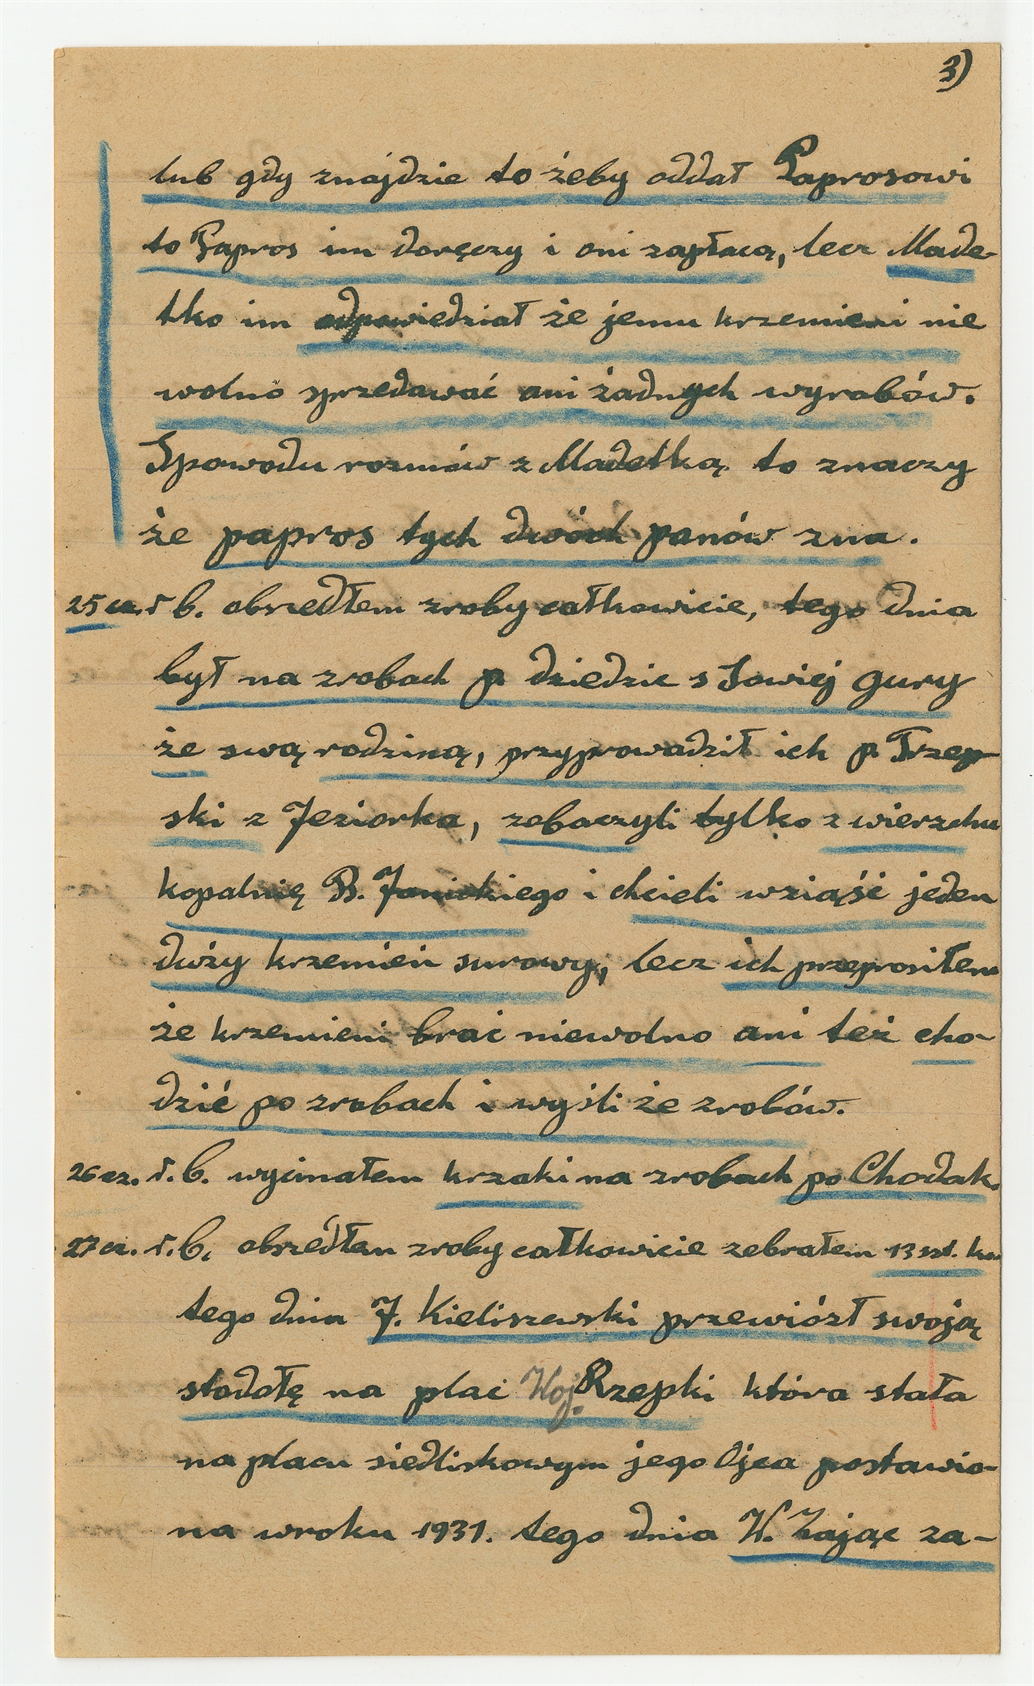 3)
lub gdy znajdzie to żeby oddał Paprosowi
to Papros im doręczy i oni zapłacą, lecz Made-
tko im odpowiedział że jemu krzemieni nie
wolno sprzedawać ani żadnych wyrobów.
Spowodu rozmów z Madetką to znaczy
że papros tych dwóch panów zna.
25 cz. r b. obszedłem zroby całkowicie, tego dnia
był na zrobach p dziedzic s Sowiej gury
że swą rodziną, przyprowadził ich p. Trzep
ski z Jeziorka, zobaczyli tylko z wierzchu
kopalnię B. Janickiego i chcieli wziąśź jeden
duży krzemień surowy, lecz ich przeprosiłem
że krzemieni brać niewolno ani też cho-
dzić po zrobach i wyśli że zrobów.
26 cz. r. b. wycinałem krzaki na zrobach po Chodak.
27 cz. r. b. obszedłem zroby całkowicie zebrałem 13 szt. kz
tego dnia J. Kieliszewski przewiózł swoją
stodołę na plac Woj. Rzepki która stała
na placu siedliskowym jego Ojca postawio-
na wroku 1931. tego dnia W. Zając za-